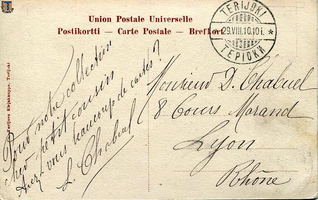 Union Postale Universelle
Postikortti — Carte Postale — Brefkort
TERIJOKI
29.VIII.10.10 i.
ТЕРІОКИ
Pour notre collection
petit cousin
Avez-vous beaucoup de cartes?
L. Chabeul
Monsieur D. Chabeul
8 Cours Morand
Lyon
Rhône